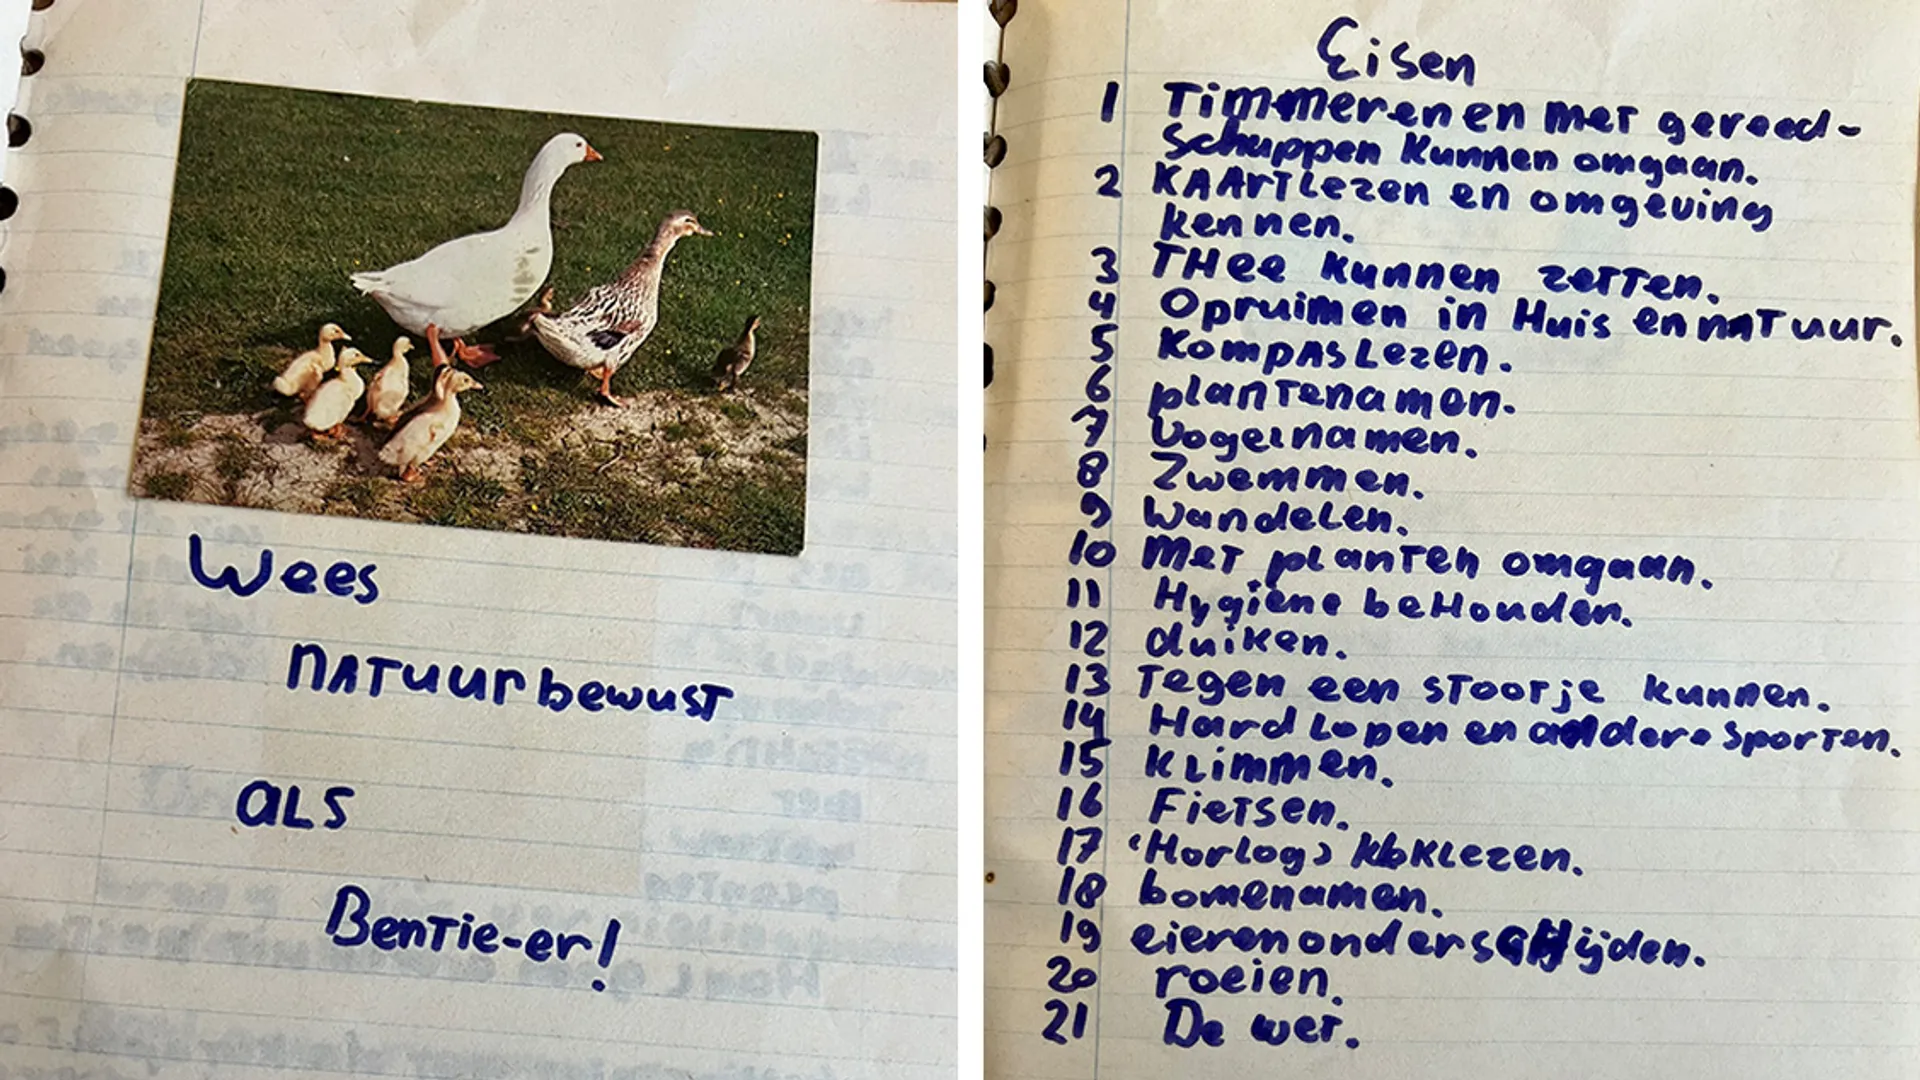 Wees
natuurbewust
als
Bentie-er!
Eisen
1 Timmeren en met gereed-
schappen kunnen omgaan.
2 Kaartlezen en omgeving
kennen.
3 THee kunnen zetten.
4 Opruimen in Huis en natuur.
5 Kompas Lezen.
6 plantenamen.
7 Vogelnamen.
8 Zwemmen.
9 Wandelen.
10 Met planten omgaan.
11 Hygiëne beHouden.
12 duiken.
13 Tegen een stootje kunnen.
14 Hard Lopen en andere sporten.
15 Klimmen.
16 Fietsen.
17 (Horlog) kloklezen.
18 bomenamen.
19 eieren onderscHijden.
20 roeien.
21 De wet.